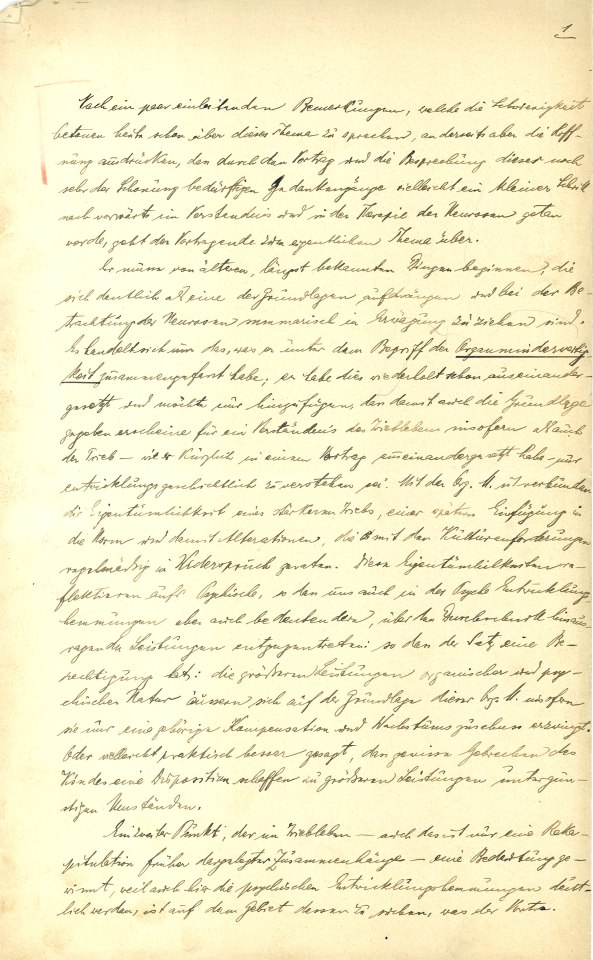 1
Nach ein paar einleitenden Bemerkungen, welche die Schwierigkeit
betonen heute schon über dieses Thema zu sprechen, anderseits aber die Hoff-
nung ausdrücken, dass durch den Vortrag und die Besprechung dieser noch
sehr der Schonung bedürftigen Gedankengänge vielleicht ein kleiner Schritt
nach vorwärts im Verständnis und in der Therapie der Neurosen getan
werde, geht der Vortragende zum eigentlichen Thema über.
Er müsse von älteren, längst bekannten Dingen beginnen, die
sich deutlich als eine der Grundlagen aufdrängen und bei der Be-
trachtung der Neurosen summarisch in Erwägung zu ziehen sind.
Es handelt sich um das, was er unter dem Begriff der Organminderwertig-
keit zusammengefasst habe; er habe dies wiederholt schon auseinander-
gesetzt und möchte nur hinzufügen, dass damit auch die Grundlage
gegeben erscheine für ein Verständnis des Trieblebens insofern als auch
der Trieb — wie er kürzlich in einem Vortrag auseinandergesetzt habe — nur
entwicklungsgeschichtlich zu verstehen sei. Mit der Org. M. ist verbunden
die Eigentümlichkeit eines stärkeren Triebs, einer späten Einfügung in
die Norm und damit Alterationen, die mit den Kulturanforderungen
regelmässig in Widerspruch geraten. Diese Eigentümlichkeiten re-
flektieren aufs Psychische, so dass uns auch in der Psyche Entwicklungs-
hemmungen aber auch bedeutendere, über den Durchschnitt hinaus-
ragende Leistungen entgegentreten: so dass der Satz eine Be-
rechtigung hat: die größeren Leistungen organischer und psy-
chischer Natur äussern sich auf der Grundlage dieser Org. M. insofern
sie nur eine gehörige Kompensation und Wachstumszuschuss erzwingt.
Oder vielleicht praktisch besser gesagt, dass gewisse Gebrechen des
Kindes eine Disposition schaffen zu größeren Leistungen unter gün-
stigen Umständen.
Ein zweiter Punkt, der im Triebleben — auch das ist nur eine Reka-
pitulation früher dargelegter Zusammenhänge — eine Bedeutung ge-
winnt, weil auch hier die psychischen Entwicklungshemmungen deut-
lich werden, ist auf dem Gebiet dessen zu suchen, was der Vortr.